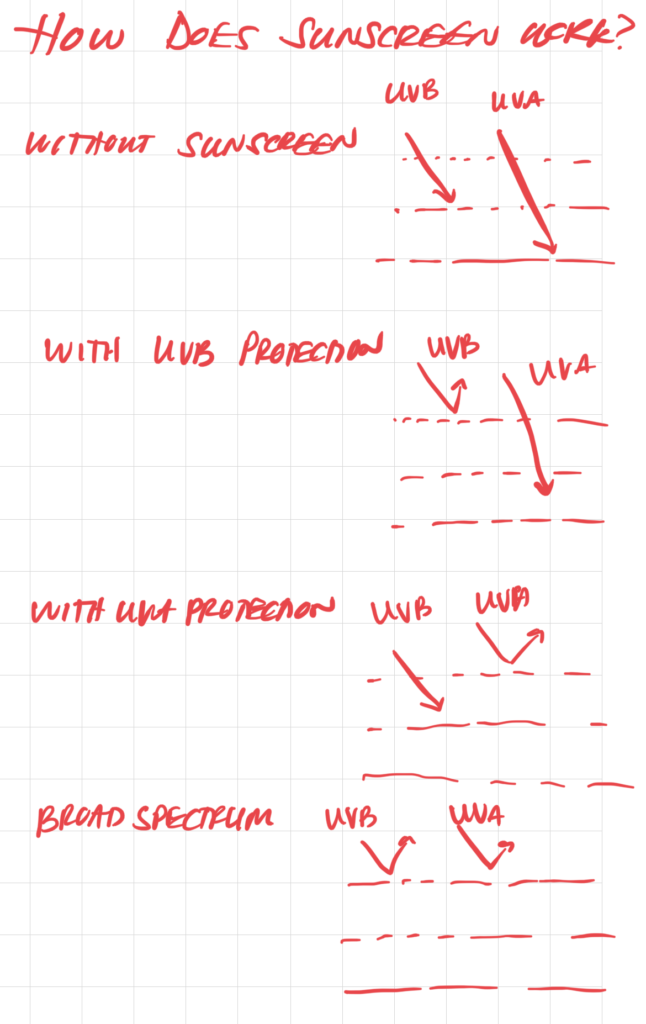 HOW DOES SUNSCREEN WORK?
UVB UVA
WITHOUT SUNSCREEN
WITH UVB PROTECTION UVB
UVA
WITH UVA PROTECTION UVB UVA
BROAD SPECTRUM UVB UVA